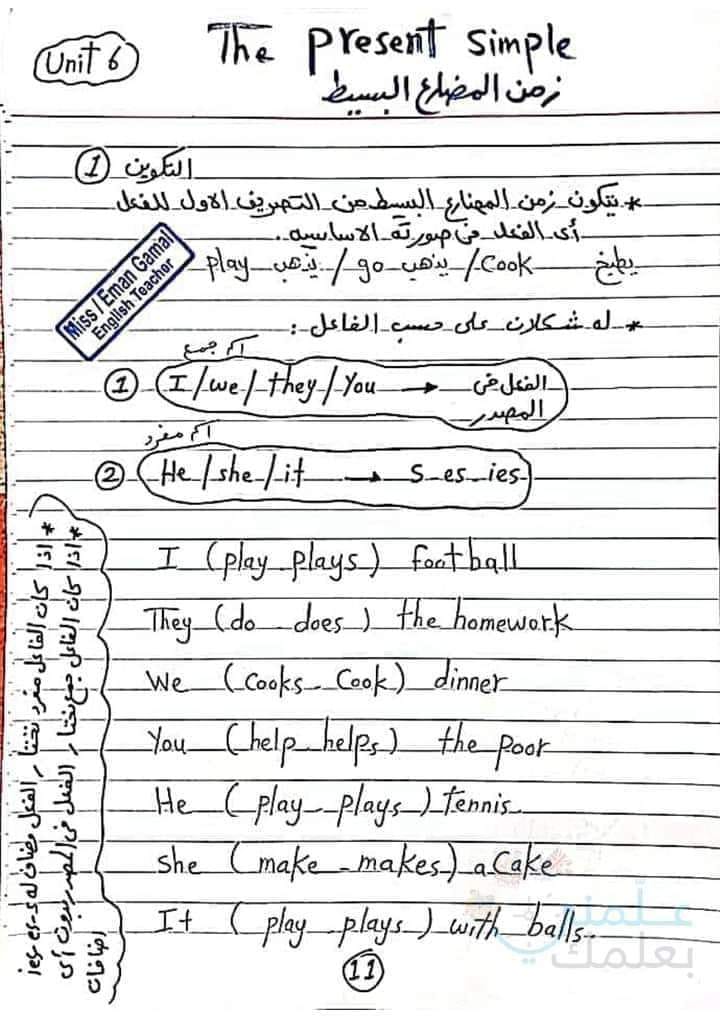 Unit 6
The present simple
زمن المضارع البسيط
① التكوين
* يتكون زمن المضارع البسيط من التصريف الاول للفعل
أى الفعل فى صورته الاساسيه.
play يذهب / go يذهب / Cook يطبخ
Miss / Eman Gamal
English Teacher
* له شكلان على حسب الفاعل :
اسم جمع
① I / we / they / You → الفعل فى
المصدر
اسم مفرد
② He / she / it → S - es - ies
I (play - plays) football
They (do - does) the homework
We (Cooks - Cook) dinner
You (help - helps) the poor
He (play - plays) tennis
she (make - makes) a Cake
It (play - plays) with balls.
* اذا كان الفاعل مفرد نختار الفعل مضاف له ies - es - s
* اذا كان الفاعل جمع نختار الفعل فى المصدر بدون أى
اضافات
علّمني
بعلمك
11